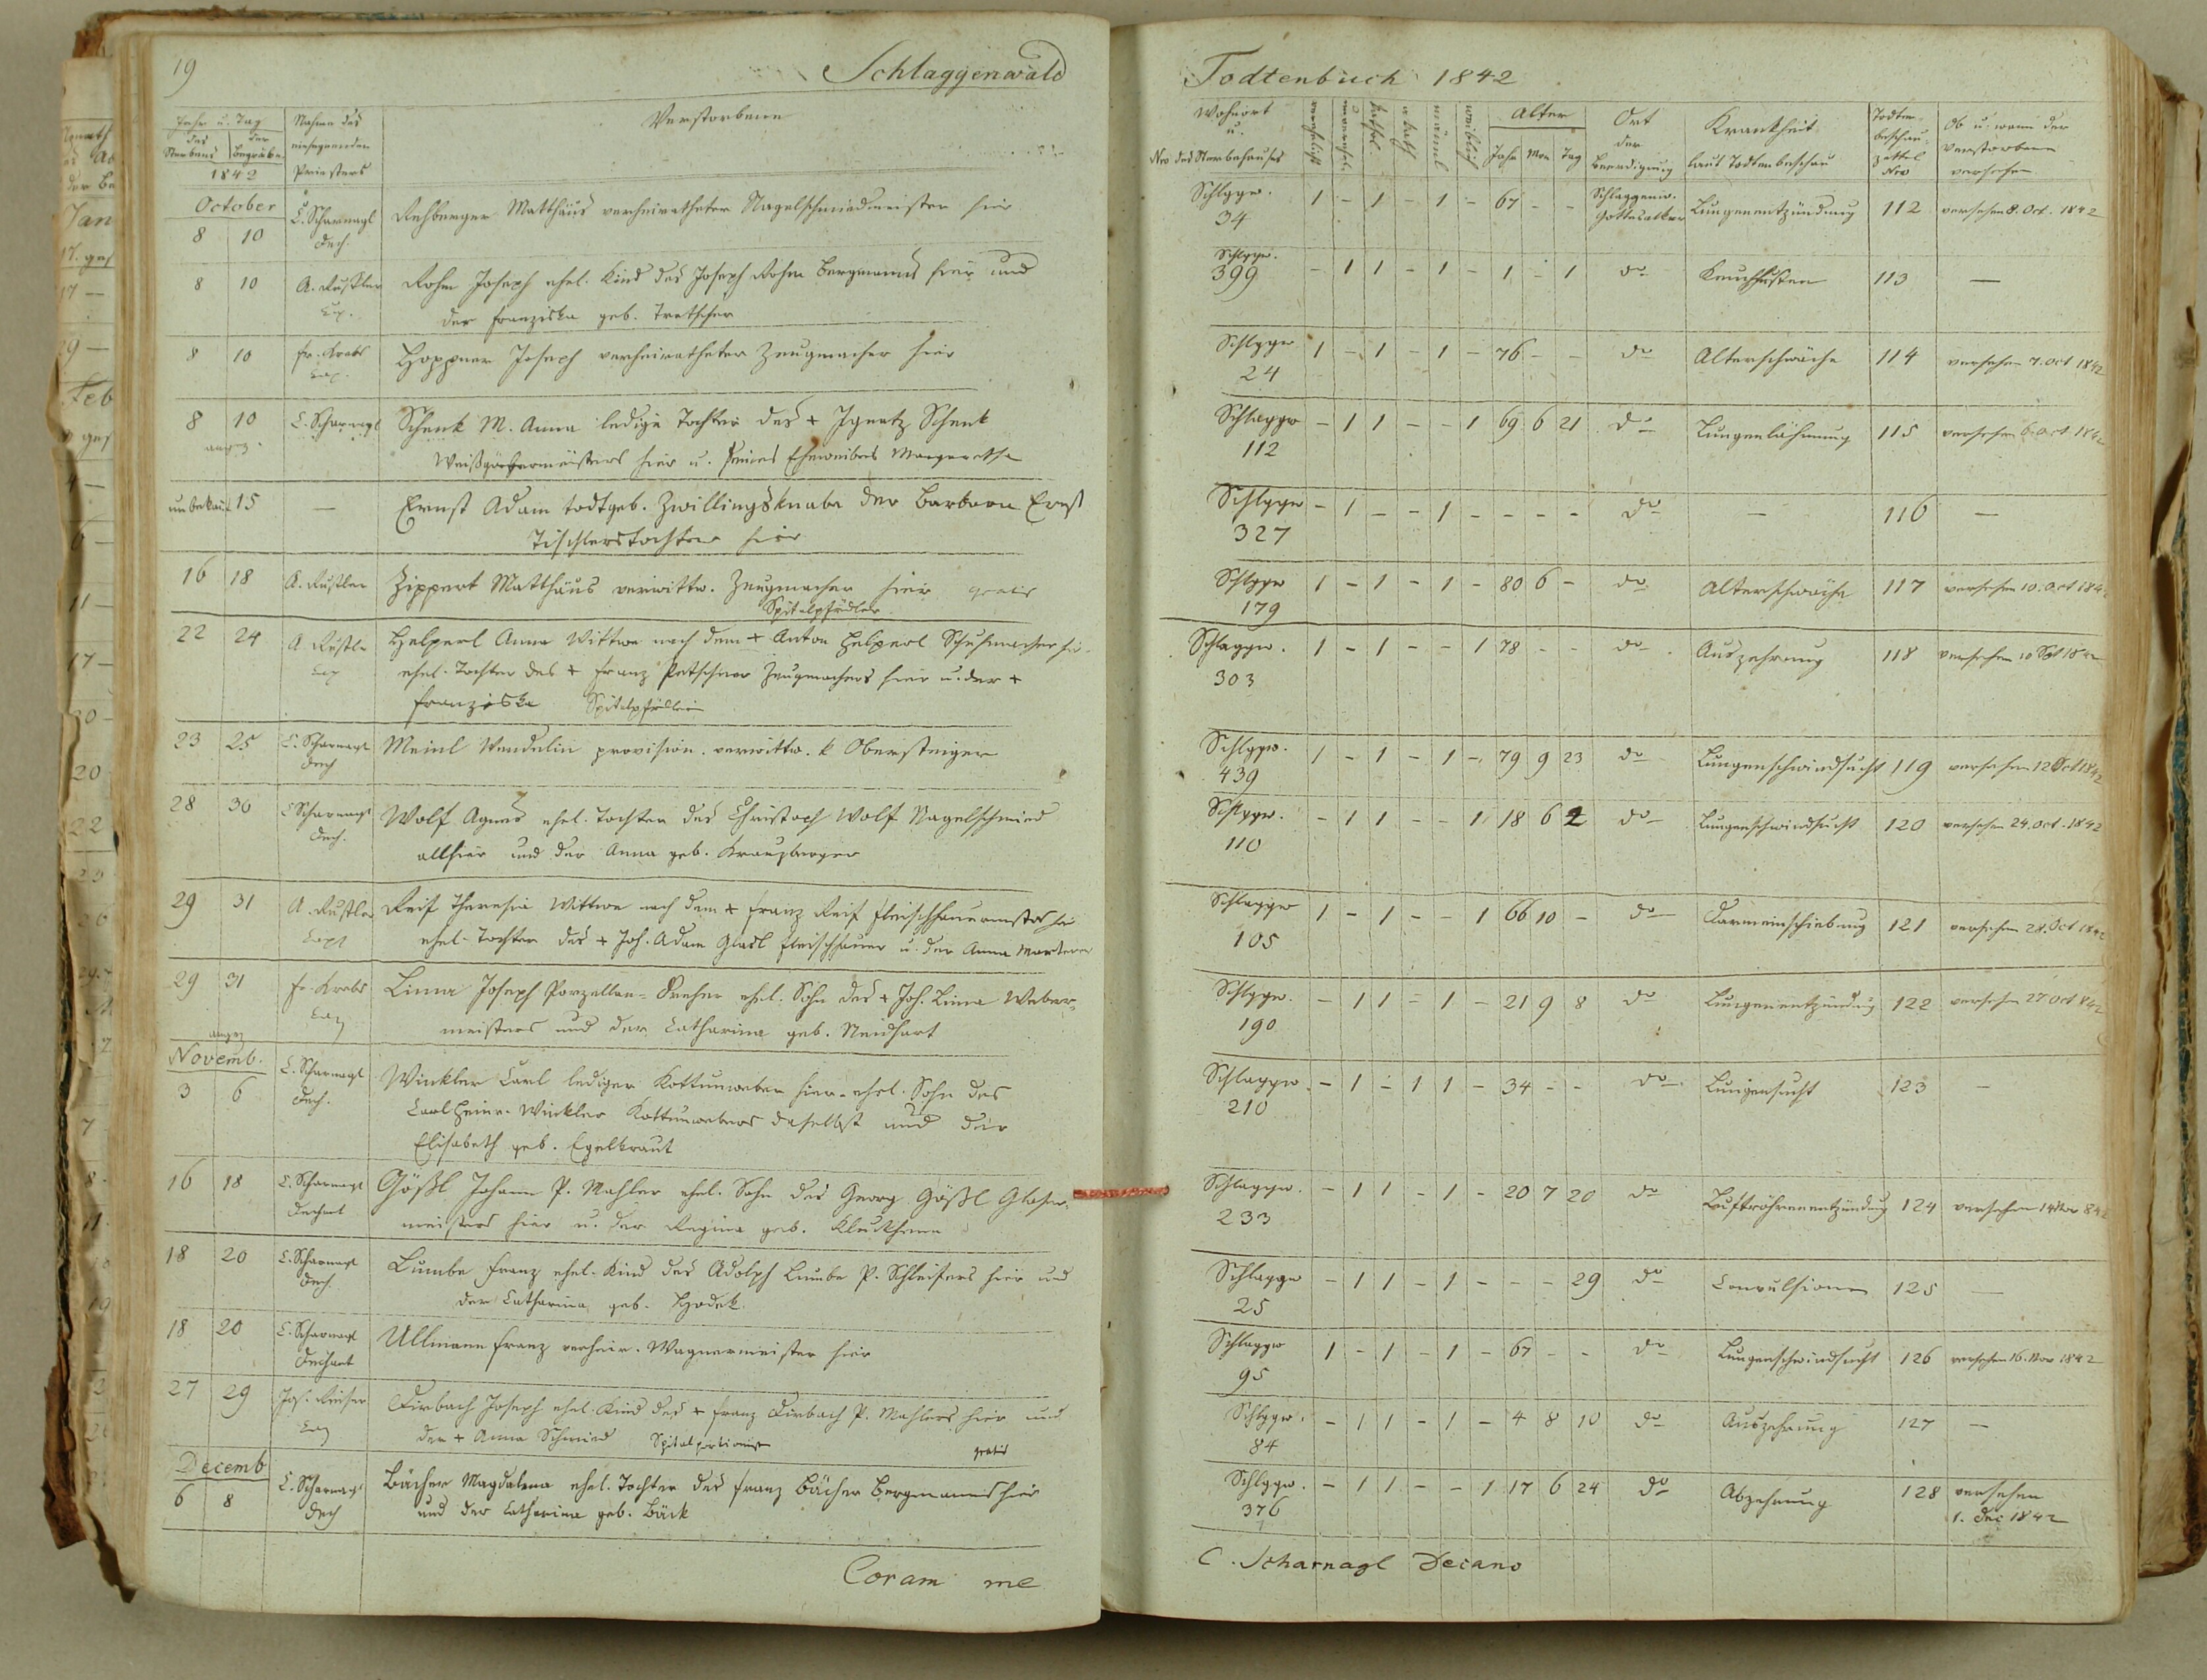 19
Schlaggenwald
Jahr u. Tag
des Sterbens
der Begräbn.
1842
Nahme des
einsegnenden
Priesters
Verstorbene
October
8 10 C. Scharnagl Dech. Rehberger Matthäus verheiratheter Nagelschmiedmeister hier
8 10 A. Rustler Cap. Rohm Joseph ehel. Kind des Joseph Rohm Bergmanns hier und
der Franziska geb. Tretscher
8 10 Fr. Krebs Cap. Hoppner Joseph verheiratheter Zeugmacher hier
8 10 C. Scharnagl Schenk M. Anna ledige Tochter des + Ignatz Schenk
Weißgärbermeisters hier u. seines Eheweibes Margaretha
unbekant 15 — Ernst Adam todtgeb. Zwillingsknabe der Barbara Ernst
Tischlerstochter hier
16 18 A. Rustler Zippert Matthäus verwittw. Zeugmacher hier gratis
Spitalpfründler
22 24 A. Rustler Cap Helperl Anna Wittwe nach dem + Anton Helperl Schuhmacher hier
ehel. Tochter des + Franz Petschner Zeugmachers hier u. der +
Franziska Spitalpfründlerin
23 25 C. Scharnagl Dech Meinl Wendelin provision. verwittw. k Obersteiger
28 30 C Scharnagl Dech. Wolf Agnes ehel. Tochter des Christoph Wolf Nagelschmied
allhier und der Anna geb. Kreuzberger
29 31 A. Rustler Capl Reif Theresia Wittwe nach dem + Franz Reif Fleischhauermeister hier
ehel. Tochter des + Joh. Adam Glasl Fleischhauer u. der Anna Marterer
29 31 Fr. Krebs Cap Lima Joseph Porzellan-Dreher ehel. Sohn des + Joh. Lima Weber-
meisters und der Catharina geb. Neidhart
Novemb.
3 6 C. Scharnagl Dech. Winkler Carl lediger Kottunweber hier ehel. Sohn des
Carl Heinr. Winkler Kottunwebers daselbst und der
Elisabeth geb. Egelkraut
16 18 C. Scharnagl Dechant Gößl Johann P. Mahler ehel. Sohn des Georg Gößl Glaser-
meisters hier u. der Regina geb.
18 20 C. Scharnagl Dech. Lumbe Franz ehel. Kind des Adolph Lumbe P. Schleifers hier und
der Catharina geb. Hodek
18 20 C. Scharnagl Dechant Ullmann Franz verheir. Wagnermeister hier
27 29 Jos. Reiser Cap Dirbach Joseph ehel. Kind des + Franz Dirbach P. Mahlers hier und
der + Anna Schmied Spitalportionist gratis
Decemb
6 8 C. Scharnagl Dech Bächer Magdalena ehel. Tochter des Franz Bächer Bergmanns hier
und der Catharina geb. Bäck
Coram me
Todtenbuch 1842
Wohnort
u.
Nro des Sterbehauses
verehlicht
unverehel.
kathol.
akath
mänl
weiblich
Alter
Jahr Mon Tag
Ort
der
Beerdigung
Krankheit
laut Todtenbeschau
Todten-
beschau-
zettel
Nro
Ob u. wann der
Verstorbene
versehen
Schlggw. 34 1 - 1 - 1 - 67 - - Schlaggenw. Gottesacker Lungenentzündung 112 versehen 8. Oct. 1842
Schlggw. 399 - 1 1 - 1 - 1 - 1 do Keuchhusten 113 —
Schlggw 24 1 - 1 - 1 - 76 - - do Altersschwäche 114 versehen 7. Oct 1842
Schlaggw 112 - 1 1 - - 1 69 6 21 do Lungenlähmung 115 versehen 6. Oct 1842
Schlggw 327 - 1 - - 1 - - - - do — 116 —
Schlggw 179 1 - 1 - 1 - 80 6 - do Altersschwäche 117 versehen 10. Oct 1842
Schlaggw. 303 1 - 1 - - 1 78 - - do Auszehrung 118 versehen 10 Spt 1842
Schlggw. 439 1 - 1 - 1 - 79 9 23 do Lungenschwindsucht 119 versehen 12 Oct 1842
Schlggw. 110 - 1 1 - - 1 18 6 2 do Lungenschwindsucht 120 versehen 24. Oct. 1842
Schlaggw 105 1 - 1 - - 1 66 10 - do Darmeinschiebung 121 versehen 28. Oct 1842
Schlggw. 190 - 1 1 - 1 - 21 9 8 do Lungenentzündung 122 versehen 27 Oct 842
Schlaggw. 210 - 1 - 1 1 - 34 - - do Lungensucht 123 —
Schlaggw. 233 - 1 1 - 1 - 20 7 20 do Luftröhrenentzündung 124 versehen 14 Nov 842
Schlaggw 25 - 1 1 - 1 - - - 29 do Convulsionen 125 —
Schlaggw 95 1 - 1 - 1 - 67 - - do Lungenschwindsucht 126 versehen 16. Nov 1842
Schlggw. 84 - 1 1 - 1 - 4 8 10 do Auszehrung 127 —
Schlggw. 376 - 1 1 - - 1 17 6 24 do Abzehrung 128 versehen
1. Dec 1842
C. Scharnagl Decano